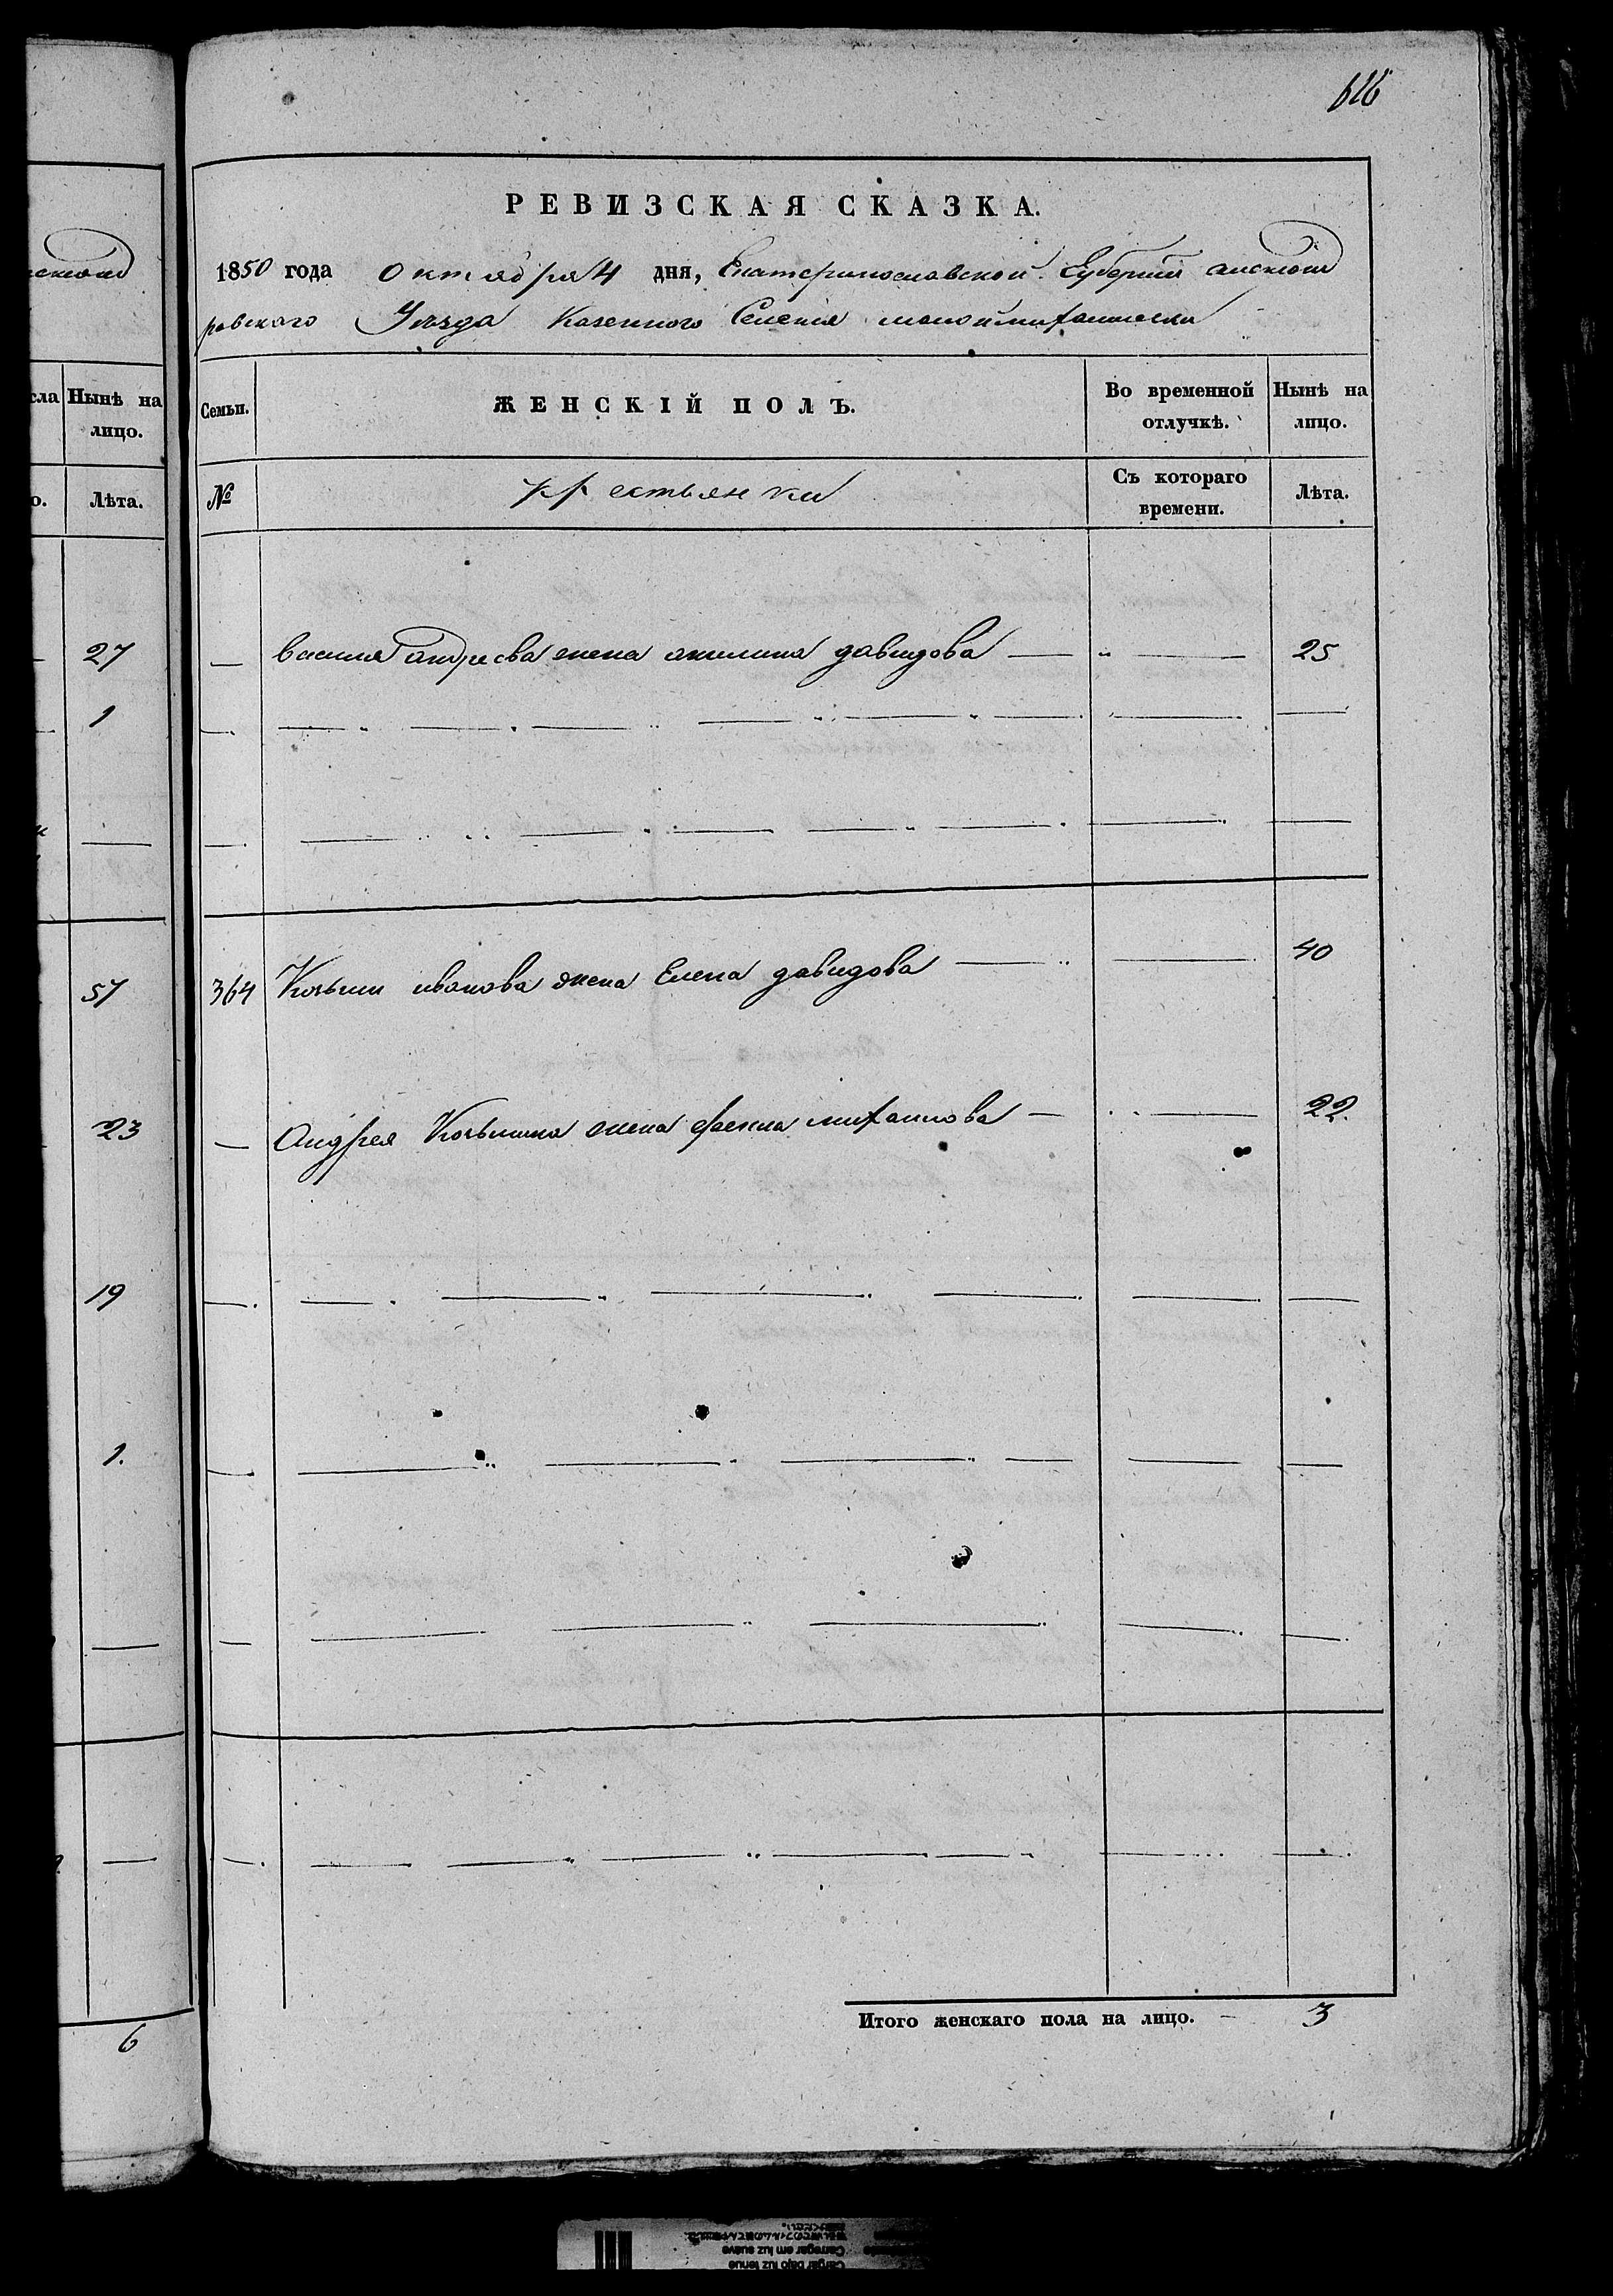 616
РЕВИЗСКАЯ СКАЗКА.
1850 года октября 4 дня, Екатеринославской Губернии александ
ровскаго Уезда Казенного Селения малой михайловки
Семьи.
ЖЕНСКІЙ ПОЛЪ.
Во временной отлучкѣ.
Нынѣ на лицо.
№
крестьянки
Съ котораго времени.
Лѣта.
василия андреева жена акилина давидова 25
364 Козьми иванова жена Елена давидова 40
Андрея Козьмина жена фекла михайлова 22.
Итого женскаго пола на лицо. 3
Нынѣ на лицо.
Лѣта.
27
1
57
23
19
1.
6